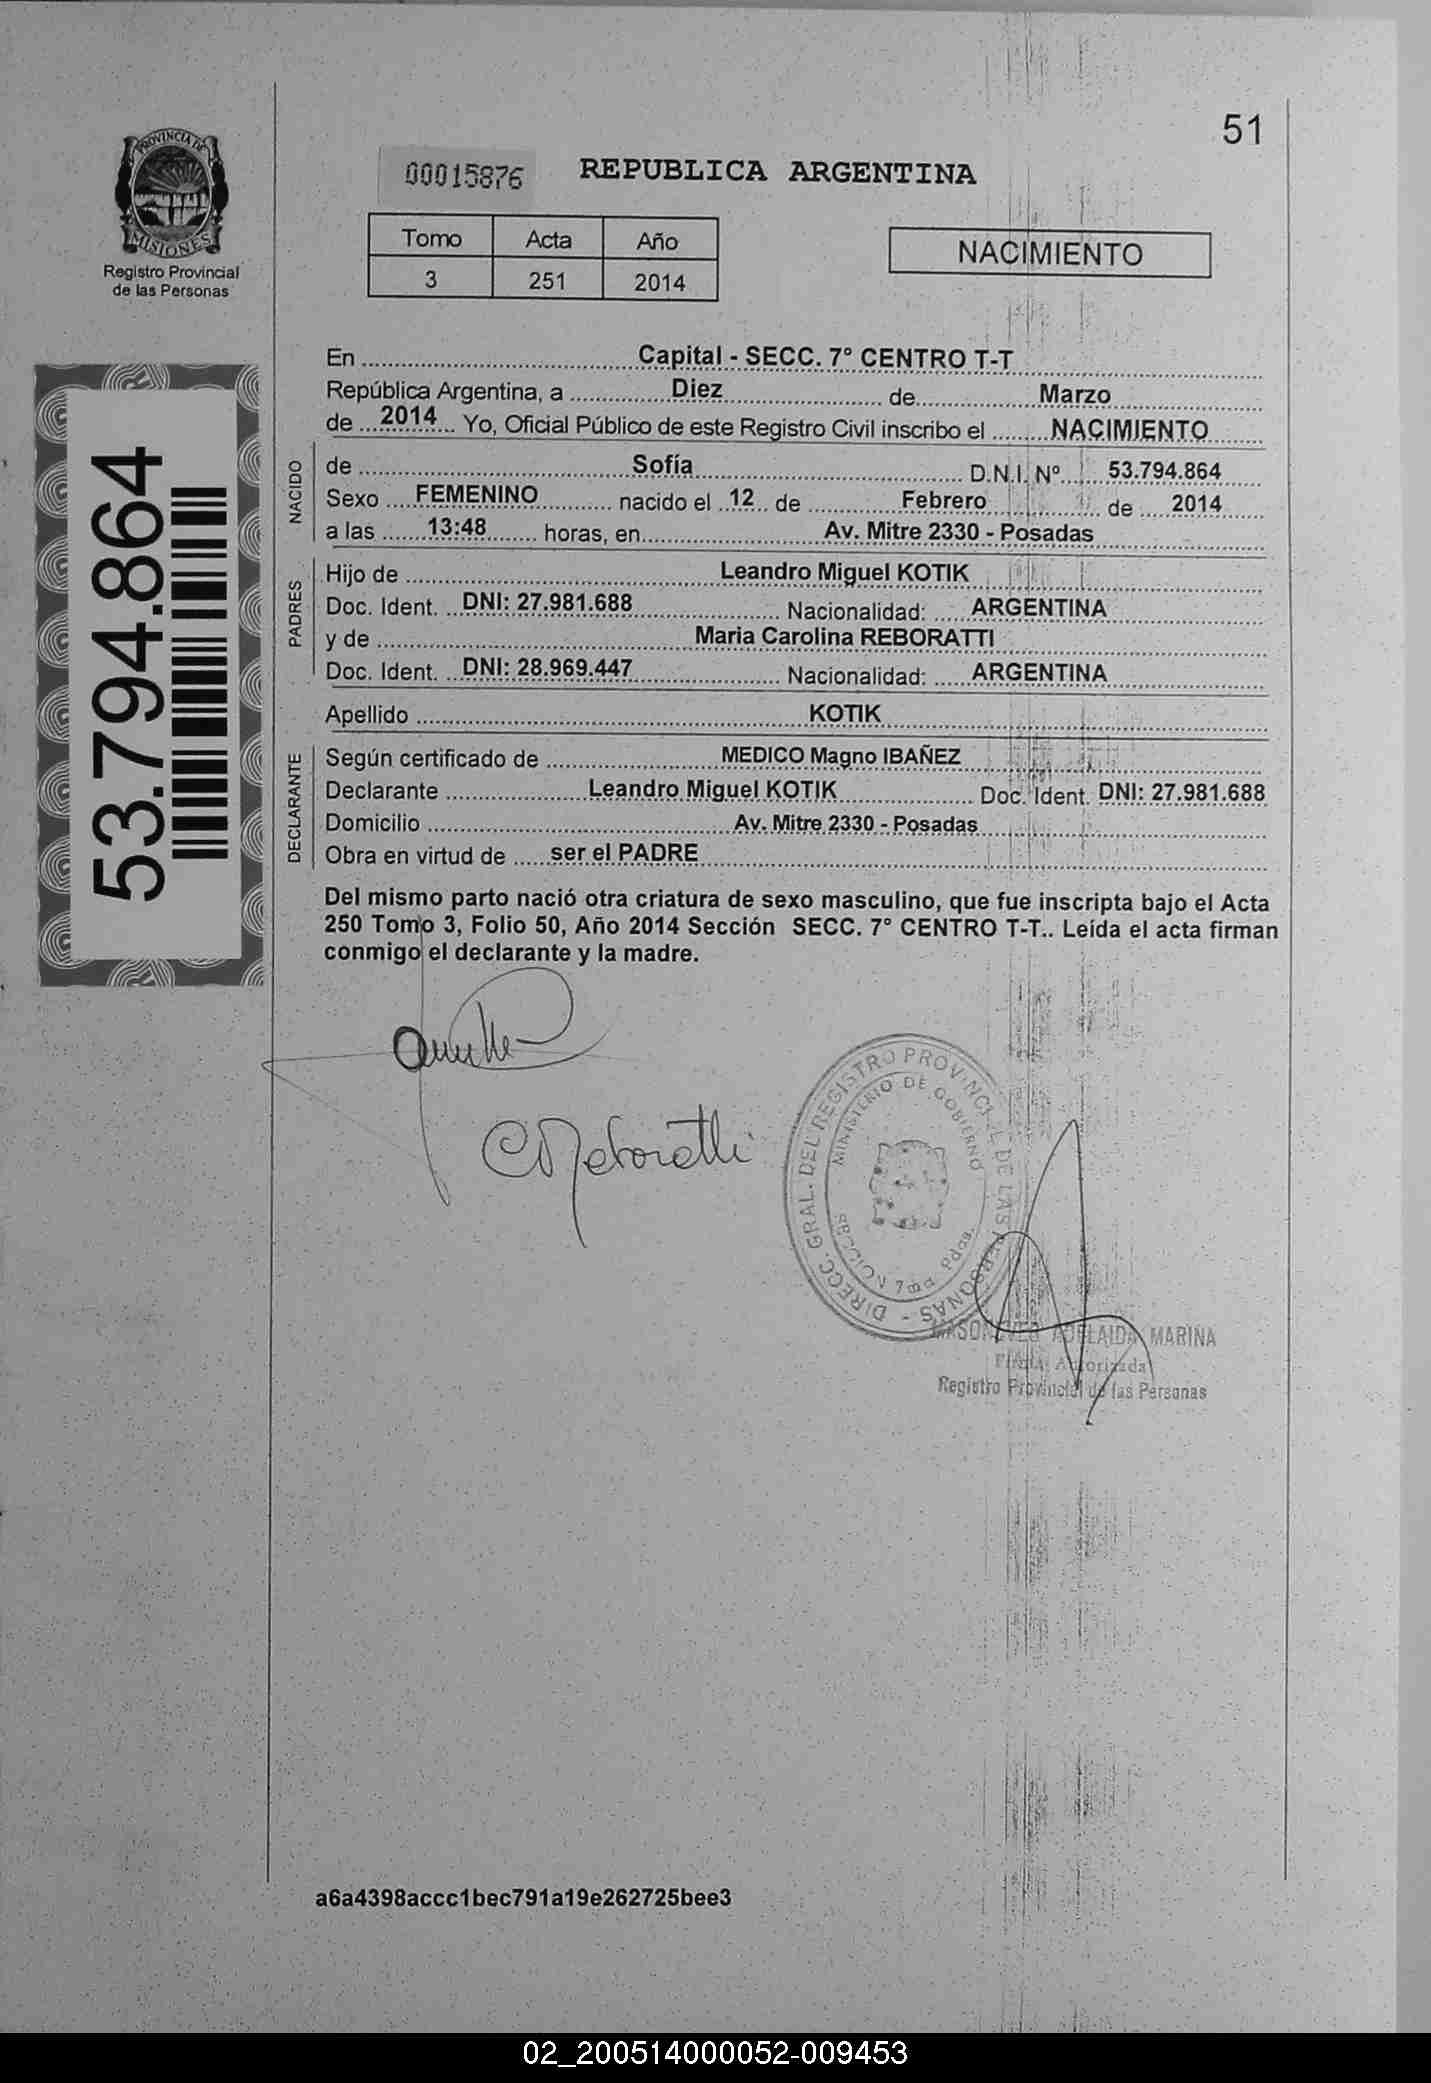 51
PROVINCIA DE
MISIONES
Registro Provincial
de las Personas
00015876
REPUBLICA ARGENTINA
Tomo Acta Año
3 251 2014
NACIMIENTO
53.794.864
En Capital - SECC. 7° CENTRO T-T
República Argentina, a Diez de Marzo
de 2014 Yo, Oficial Público de este Registro Civil inscribo el NACIMIENTO
NACIDO
de Sofía D.N.I. Nº 53.794.864
Sexo FEMENINO nacido el 12 de Febrero de 2014
a las 13:48 horas, en Av. Mitre 2330 - Posadas
PADRES
Hijo de Leandro Miguel KOTIK
Doc. Ident. DNI: 27.981.688 Nacionalidad: ARGENTINA
y de Maria Carolina REBORATTI
Doc. Ident. DNI: 28.969.447 Nacionalidad: ARGENTINA
Apellido KOTIK
DECLARANTE
Según certificado de MEDICO Magno IBAÑEZ
Declarante Leandro Miguel KOTIK Doc. Ident. DNI: 27.981.688
Domicilio Av. Mitre 2330 - Posadas
Obra en virtud de ser el PADRE
Del mismo parto nació otra criatura de sexo masculino, que fue inscripta bajo el Acta
250 Tomo 3, Folio 50, Año 2014 Sección SECC. 7° CENTRO T-T.. Leída el acta firman
conmigo el declarante y la madre.
C Reboratti
DIRECC. GRAL. DEL REGISTRO PROVINCIAL DE LAS PERSONAS -
MINISTERIO DE GOBIERNO
SECCION 7ma Pdas.
ADELAIDA MARINA
Firma Autorizada
Registro Provincial de las Personas
a6a4398accc1bec791a19e262725bee3
02_200514000052-009453